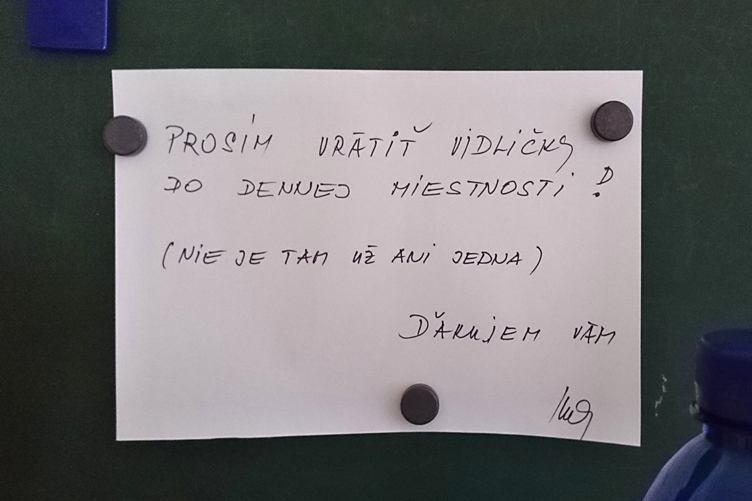 PROSÍM VRÁTIŤ VIDLIČKY
DO DENNEJ MIESTNOSTI!
(NIE JE TAM UŽ ANI JEDNA)
ĎAKUJEM VÁM